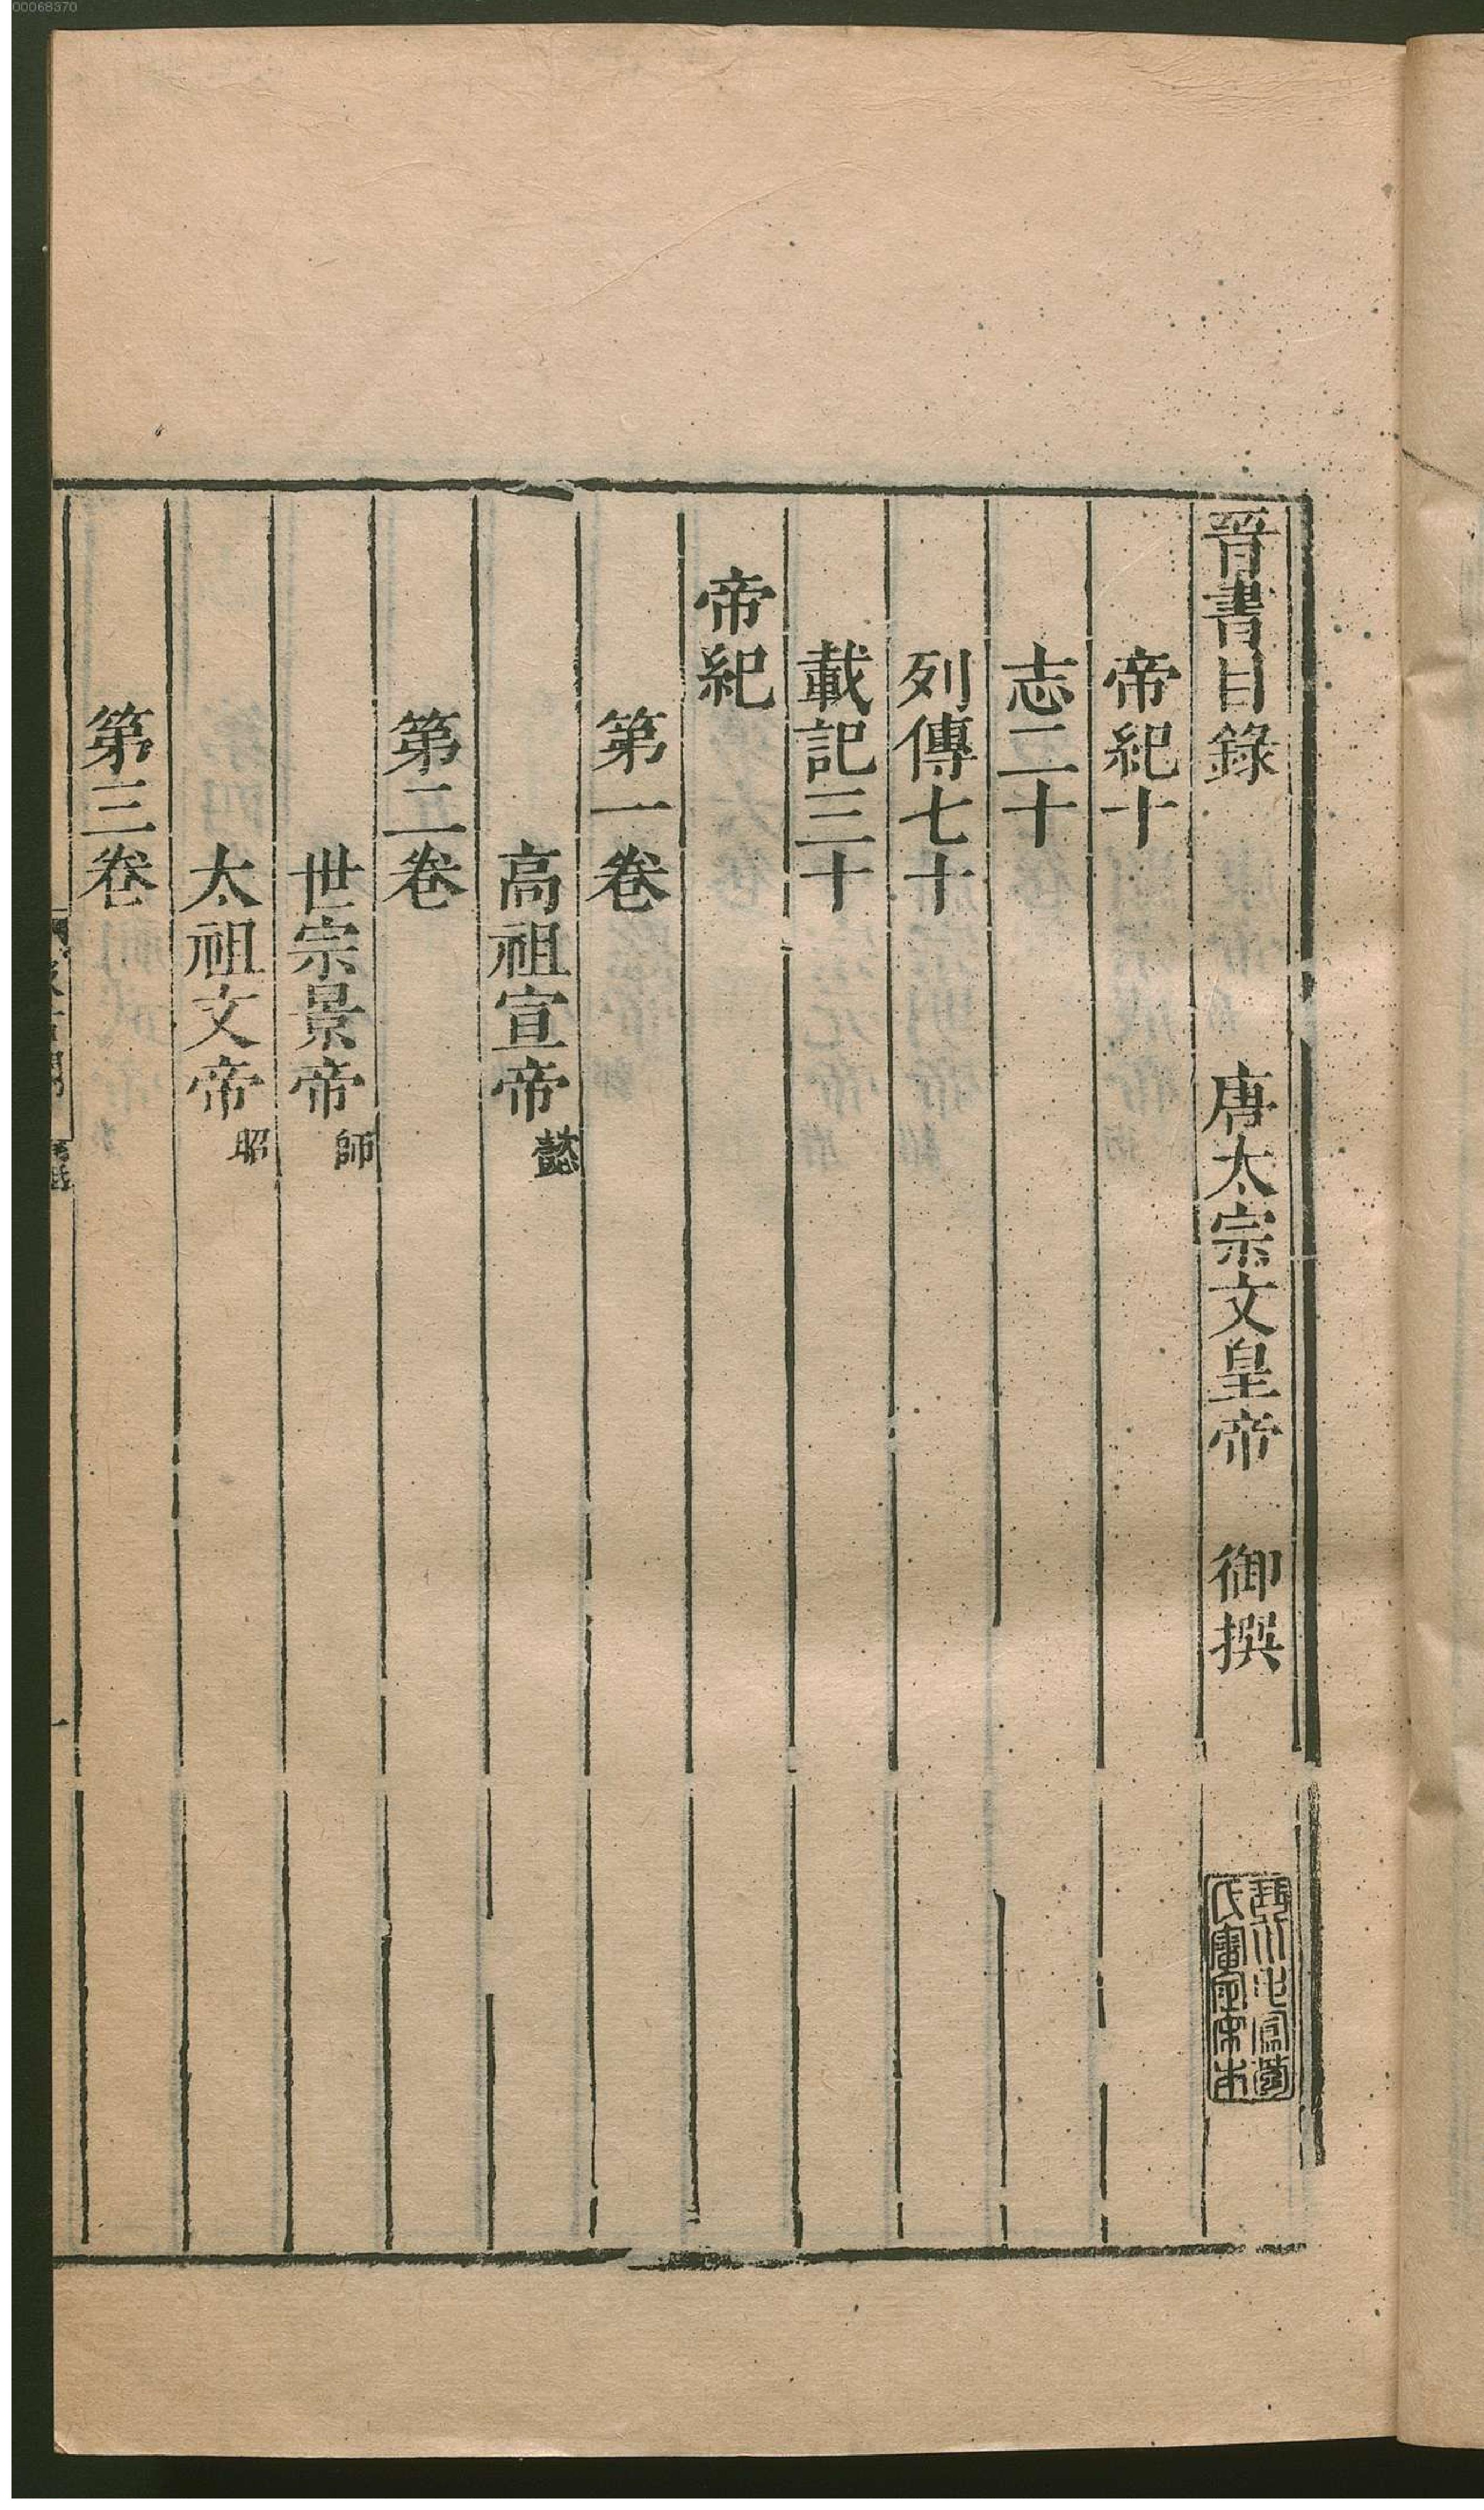 00068370
晉書目錄　唐太宗文皇帝　御撰
帝紀十
志二十
列傳七十
載記三十
帝紀
第一卷
高祖宣帝 懿
第二卷
世宗景帝 師
太祖文帝 昭
第三卷
一